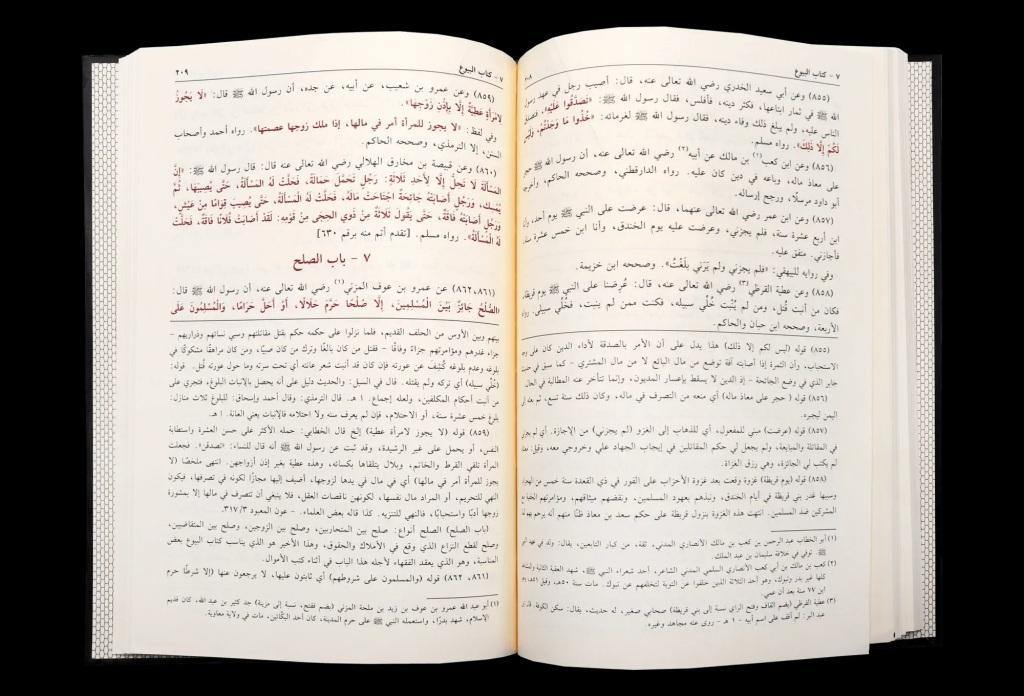 ٢٠٨
٧ - كتاب البيوع
(٨٥٥) وعن أبي سعيد الخدري رضي الله تعالى عنه، قال: أصيب رجل في عهد رسول
الله ﷺ في ثمار ابتاعها، فكثر دينه، فأفلس، فقال رسول الله ﷺ: «تَصَدَّقُوا عَلَيْهِ»، فتصدق
الناس عليه، ولم يبلغ ذلك وفاء دينه، فقال رسول الله ﷺ لغرمائه: «خُذُوا مَا وَجَدْتُمْ، وَلَيْسَ
لَكُمْ إِلَّا ذَلِكَ». رواه مسلم.
(٨٥٦) وعن ابن كعب(١) بن مالك عن أبيه(٢) رضي الله تعالى عنه، أن رسول الله ﷺ حجر
على معاذ ماله، وباعه في دين كان عليه. رواه الدارقطني، وصححه الحاكم، وأخرجه
أبو داود مرسلًا، ورجح إرساله.
(٨٥٧) وعن ابن عمر رضي الله تعالى عنهما، قال: عرضت على النبي ﷺ يوم أحد، وأنا
ابن أربع عشرة سنة، فلم يجزني، وعرضت عليه يوم الخندق، وأنا ابن خمس عشرة سنة،
فأجازني. متفق عليه.
وفي رواية للبيهقي: «فلم يجزني ولم يَرَني بلَغْتُ». وصححه ابن خزيمة.
(٨٥٨) وعن عطية القرظي(٣) رضي الله تعالى عنه، قال: عُرضنا على النبي ﷺ يوم قريظة،
فكان من أنبت قُتل، ومن لم يُنْبت خُلِّي سبيله، فكنت ممن لم ينبت، فخُلِّي سبيلي. رواه
الأربعة، وصححه ابن حبان والحاكم.
(٨٥٥) قوله (ليس لكم إلا ذلك) هذا يدل على أن الأمر بالصدقة لأداء الدين كان على وجه
الاستحباب، وأن الثمرة إذا أصابته آفة توضع من مال البائع لا من مال المشتري - كما سبق في حديث
جابر الذي في وضع الجائحة - إذ الدين لا يسقط بإعسار المديون، وإنما تتأخر عنه المطالبة في الحال.
(٨٥٦) قوله (حجر على معاذ ماله) أي منعه من التصرف في ماله، وكان ذلك سنة تسع، ثم بعثه إلى
اليمن ليجبره.
(٨٥٧) قوله (عرضت) مبني للمفعول، أي للذهاب إلى الغزو (لم يجزني) من الإجازة. أي لم يجزني
في المقاتلة والمبايعة، ولم يجعل لي حكم المقاتلين في إيجاب الجهاد علي وخروجي معه، وقيل: معناه
لم يكتب لي الجائزة، وهي رزق الغزاة.
(٨٥٨) قوله (يوم قريظة) غزوة وقعت بعد غزوة الأحزاب على الفور في ذي القعدة سنة خمس من الهجرة
وسببها غدر بني قريظة في أيام الخندق، ونبذهم بعهود المسلمين، ونقضهم ميثاقهم، ومؤامرتهم
المشركين ضد المسلمين. انتهت هذه الغزوة بنزول قريظة على حكم سعد بن معاذ ظنًا منهم أنه يرحم بهم
(١) أبو الخطاب عبد الرحمن بن كعب بن مالك الأنصاري المدني، ثقة، من كبار التابعين، يقال: ولد في عهد النبي
ﷺ. توفي في خلافة سليمان بن عبد الملك.
(٢) كعب بن مالك بن أبي كعب الأنصاري السلمي المدني الشاعر، أحد شعراء النبي ﷺ، شهد العقبة الثانية والمشاهد
كلها غير بدر وتبوك، وهو أحد الثلاثة الذين خلفوا عن التوبة لتخلفهم عن تبوك. مات سنة ٥٠هـ، وقيل ٥١هـ،
ابن ٧٧ سنة بعد أن عمي.
(٣) عطية القرظي (بضم القاف وفتح الراي نسبة إلى بني قريظة) صحابي صغير، له حديث، يقال: سكن الكوفة. قال ابن
عبد البر: لم أقف على اسم أبيه - ا هـ - روى عنه مجاهد وغيره.
٧ - كتاب البيوع
٢٠٩
(٨٥٩) وعن عمرو بن شعيب، عن أبيه، عن جده، أن رسول الله ﷺ قال: «لَا يَجُوزُ
لامْرَأَةٍ عَطِيَّةٌ إِلَّا بِإِذْنِ زَوْجِهَا».
وفي لفظ: «لا يجوز للمرأة أمر في مالها، إذا ملك زوجها عصمتها». رواه أحمد وأصحاب
السنن، إلا الترمذي، وصححه الحاكم.
(٨٦٠) وعن قبيصة بن مخارق الهلالي رضي الله تعالى عنه قال: قال رسول الله ﷺ: «إِنَّ
المَسْأَلَةَ لَا تَحِلُّ إِلَّا لِأَحَدِ ثَلَاثَةٍ: رَجُلٍ تَحَمَّلَ حَمَالَةً، فَحَلَّتْ لَهُ الْمَسْأَلَةُ، حَتَّى يُصِيبَهَا، ثُمَّ
يُمْسِكَ، وَرَجُلٍ أَصَابَتْهُ جَائِحَةٌ اجْتَاحَتْ مَالَهُ، فَحَلَّتْ لَهُ الْمَسْأَلَةُ، حَتَّى يُصِيبَ قِوَامًا مِنْ عَيْشٍ،
وَرَجُلٍ أَصَابَتْهُ فَاقَةٌ، حَتَّى يَقُولَ ثَلَاثَةٌ مِنْ ذَوِي الحِجَى مِنْ قَوْمِهِ: لَقَدْ أَصَابَتْ فُلَانًا فَاقَةٌ، فَحَلَّتْ
لَهُ الْمَسْأَلَةُ». رواه مسلم. [تقدم أتم منه برقم ٦٣٠]
٧ - باب الصلح
(٨٦٢،٨٦١) عن عمرو بن عوف المزني(١) رضي الله تعالى عنه، أن رسول الله ﷺ قال:
«الصُّلْحُ جَائِزٌ بَيْنَ الْمُسْلِمِينَ، إِلَّا صُلْحًا حَرَّمَ حَلَالًا، أَوْ أَحَلَّ حَرَامًا، وَالْمُسْلِمُونَ عَلَى
بينهم وبين الأوس من الحلف القديم، فلما نزلوا على حكمه حكم بقتل مقاتلتهم وسبي نسائهم وذراريهم -
جزاء غدرهم ومؤامرتهم جزاءً وفاقًا - فقتل من كان بالغًا وترك من كان صبيًا، ومن كان مراهقًا مشكوكًا في
بلوغه وعدم بلوغه كُشِفَ عن عورته فإن كان قد أنبت شعر عانته أي تحت سرته وما حول عورته قُتل. قوله:
(خُلّي سبيله) أي تركه ولم يقتله. قال في السبل: والحديث دليل على أنه يحصل بالإنبات البلوغ، فتجري على
من أنبت أحكام المكلفين، ولعله إجماع. ا هـ. قال الترمذي: وقال أحمد وإسحاق: للبلوغ ثلاث منازل:
بلوغ خمس عشرة سنة، أو الاحتلام، فإن لم يعرف سنه ولا احتلامه فالإنبات يعني العانة. ا هـ.
(٨٥٩) قوله (لا يجوز لامرأة عطية) إلخ قال الخطابي: حمله الأكثر على حسن العشرة واستطابة
النفس، أو يحمل على غير الرشيدة، وقد ثبت عن رسول الله ﷺ أنه قال للنساء: "تصدقن". فجعلت
المرأة تلقي القرط والخاتم، وبلال يتلقاها بكسائه، وهذه عطية بغير إذن أزواجهن. انتهى ملخصًا (لا
يجوز للمرأة أمر في مالها) أي في مال في يدها لزوجها، أضيف إليها مجازًا لكونه في تصرفها، فيكون
النهي للتحريم، أو المراد مال نفسها، لكونهن ناقصات العقل، فلا ينبغي أن تتصرف في مالها إلا بمشورة
زوجها أدبًا واستحبابًا، فالنهي للتنزيه. كذا قاله بعض العلماء. - عون المعبود ٣١٧/٣.
(باب الصلح) الصلح أنواع: صلح بين المتحاربين، وصلح بين الزوجين، وصلح بين المتقاضيين،
وصلح لقطع النزاع الذي وقع في الأملاك والحقوق، وهذا الأخير هو الذي يناسب كتاب البيوع بعض
المناسبة، وهو الذي يعقد الفقهاء لأجله هذا الباب في أثناء كتب الأموال.
(٨٦١، ٨٦٢) قوله (والمسلمون على شروطهم) أي ثابتون عليها، لا يرجعون عنها (إلا شرطًا حرم
(١) أبو عبد الله عمرو بن عوف بن زيد بن ملحة المزني (بضم ففتح، نسبة إلى مزينة) جد كثير بن عبد الله، كان قديم
الإسلام، شهد بدرًا، واستعمله النبي ﷺ على حرم المدينة، كان أحد البكّائين، مات في ولاية معاوية.